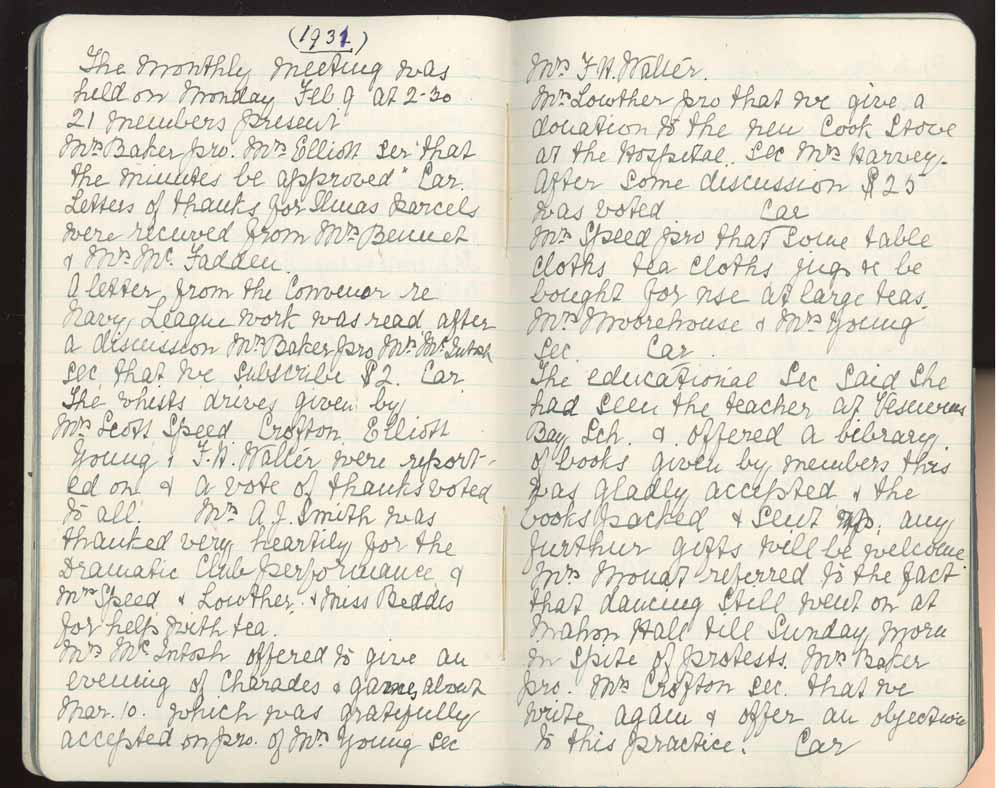 (1931)
The Monthly Meeting was
held on Monday Feb 9 at 2-30
21 members present
Mrs Baker pro. Mrs Elliott sec "that
the minutes be approved" Car.
Letters of thanks for Xmas Parcels
were received from Mrs Bennet
& Mrs Mc Fadden.
A letter from the Convenor re
Navy League work was read after
a discussion Mrs Baker pro Mrs McIntosh
sec that we subscribe $2. Car.
The whists drives given by
Mrs Scott Speed Crofton Elliott
Young & F. H. Walter were report-
ed on & a vote of thanks voted
to all. Mrs A. J. Smith was
thanked very heartily for the
Dramatic Club performance &
Mrs Speed & Lowther & Miss Beddis
for help with tea.
Mrs McIntosh offered to give an
evening of charades & games about
Mar. 10. which was gratifully
accepted on pro. of Mrs Young sec
Mrs F. H. Walter.
Mrs Lowther pro that we give a
donation to the new Cook Stove
at the Hospital. Sec Mrs Harvey.
After some discussion $25
was voted. Car
Mrs Speed pro that some table
cloths tea cloths jugs &c be
bought for use at large teas.
Mrs Moorehouse & Mrs Young
sec. Car.
The educational Sec said she
had seen the teacher at Vesuvius
Bay Sch. & offered a library
of books given by members this
was gladly accepted & the
books packed & sent up. any
further gifts will be welcome.
Mrs Mouat referred to the fact
that dancing still went on at
Mahon Hall till Sunday morn
in spite of protests. Mrs Baker
pro. Mrs Crofton sec. that we
write again & offer an objection
to this practice. Car